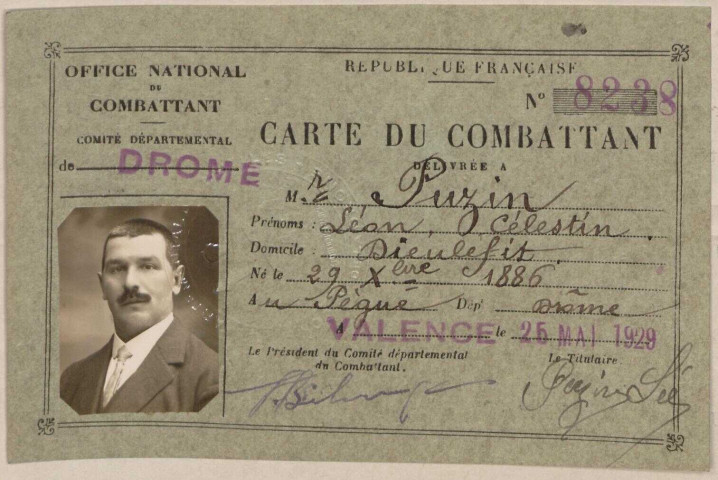 OFFICE NATIONAL
DU
COMBATTANT
COMITÉ DÉPARTEMENTAL
de DROME
RÉPUBLIQUE FRANÇAISE
N° 8238
CARTE DU COMBATTANT
DÉLIVRÉE A
M. r Puzin
Prénoms : Léon, Célestin.
Domicile : Dieulefit.
Né le 29 Xbre 1886
Au Pègue Dépt Drôme
A VALENCE le 25 MAI 1929
Le Président du Comité départemental
du Combattant.
Le Titulaire.
Puzin Lé